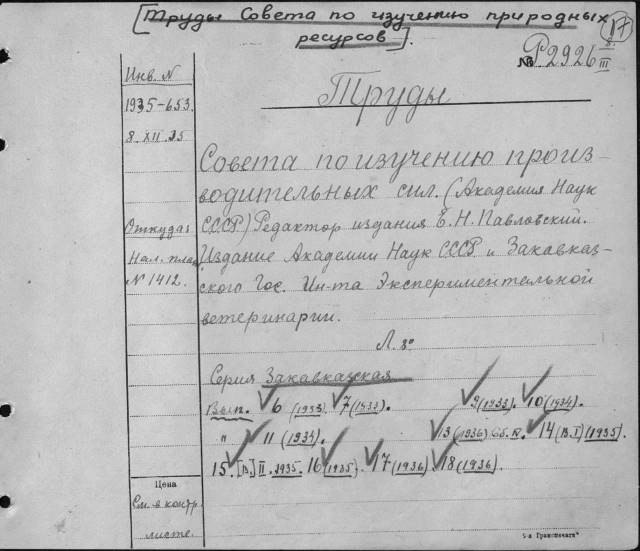 [Труды Совета по изучению природных
ресурсов].
17
№ Р2926 8/III
Инв. N
1935-653.
8.XII.35
Откуда:
Нал. плат.
N 1412.
Труды
Совета по изучению произ-
водительных сил. (Академия Наук
СССР) Редактор издания Е.Н. Павловский.
Издание Академии Наук СССР и Закавказ-
ского Гос. Ин-та Экспериментальной
ветеринарии.
Л. 8°
Серия Закавказская
Вып. 6 (1933). 7 (1933). 9 (1933). 10 (1934).
" 11 (1934). 13 (1936) Сб. 14 (в. I) (1935).
15. [в.] II. 1935. 16 (1935). 17 (1936) 18 (1936).
Цена
См. в контр.
листе.